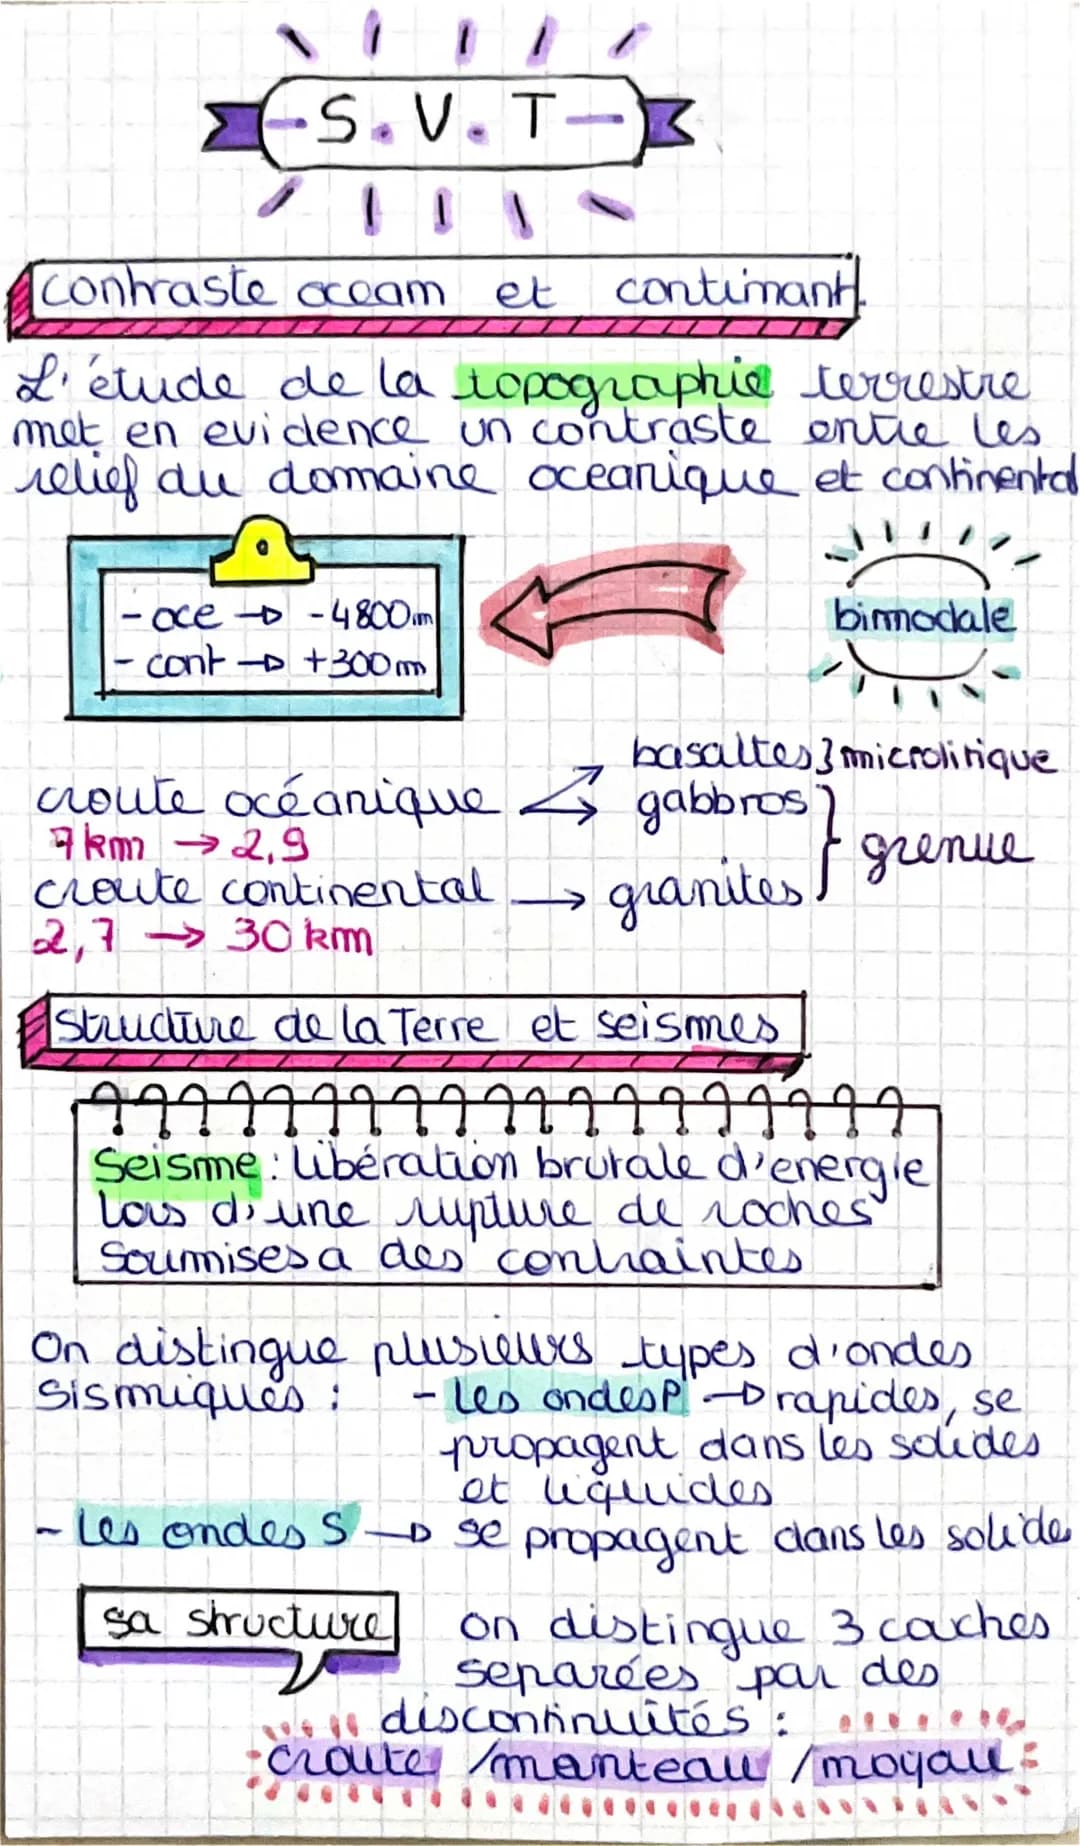 - S. V. T -
contraste ocean et continant.
L'étude de la topographie terrestre
met en evidence un contraste entre les
relief du domaine oceanique et continental
- oce → -4800m
- cont → +300m
bimodale
basaltes } microlitique
croute océanique → gabbros
7 km → 2,9
} grenue
croute continental → granites
2,7 → 30 km
structure de la Terre et seismes
Seisme : libération brutale d'energie
lors d'une rupture de roches
soumises a des contraintes
On distingue plusieurs types d'ondes
sismiques : - les ondes P → rapides, se
propagent dans les solides
et liquides
- les ondes S → se propagent dans les solide
sa structure
on distingue 3 couches
separées par des
discontinuités :
croute / manteau / noyau